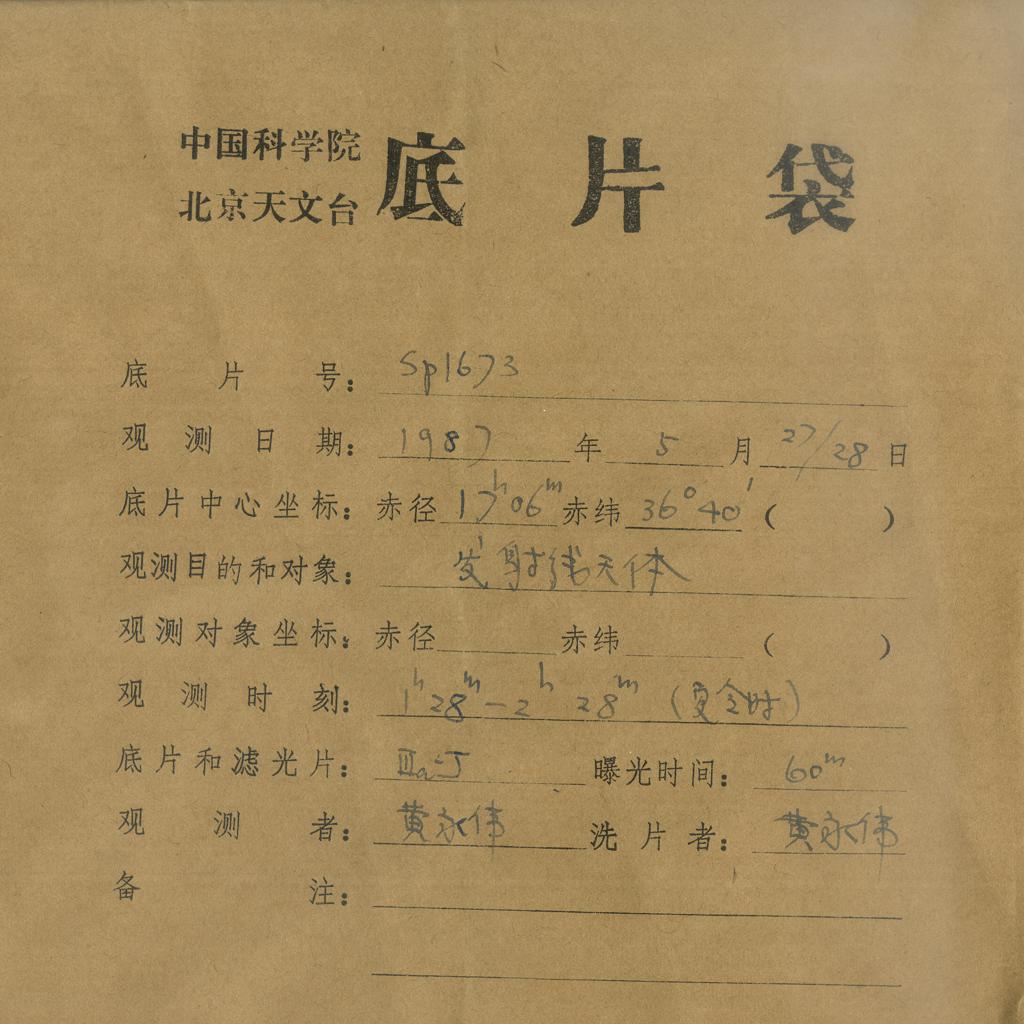 中国科学院
北京天文台 底片袋
底片号： Sp1673
观测日期： 1987 年 5 月 27/28 日
底片中心坐标： 赤径 17h06m 赤纬 36°40' ( )
观测目的和对象： 发射线天体
观测对象坐标： 赤径 赤纬 ( )
观测时刻： 1h28m－2h28m (夏令时)
底片和滤光片： ⅢaJ 曝光时间： 60m
观测者： 黄永伟 洗片者： 黄永伟
备注：